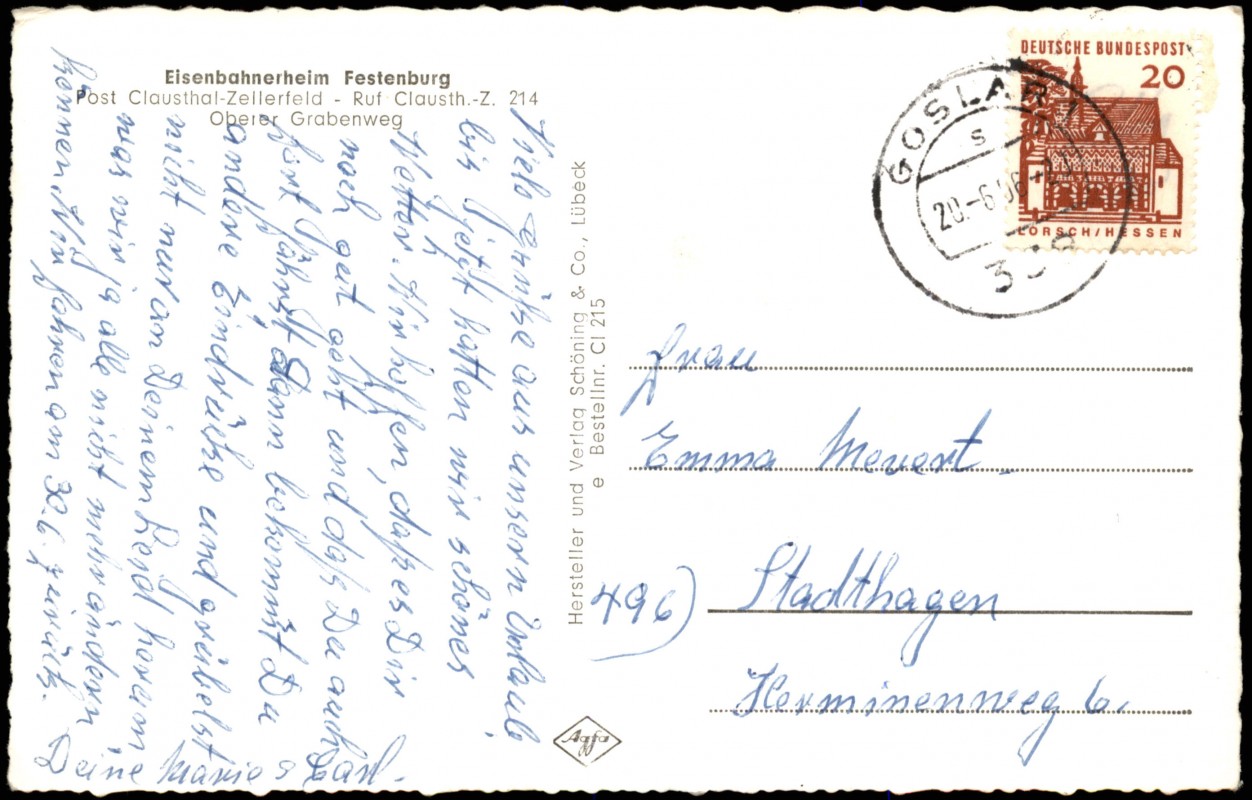 Eisenbahnerheim Festenburg
Post Clausthal-Zellerfeld - Ruf Clausth.-Z. 214
Oberer Grabenweg
Viele Grüße aus unserm Urlaub
bis jetzt hatten wir schönes
Wetter. Wir hoffen, daß es Dir
noch gut geht und daß Du auch
fort fährst, dann bekommst Du
andere Eindrücke und grübelst
nicht nur an Deinem Leid herum,
was wir ja alle nicht mehr ändern
können. Wir fahren am 30.6. zurück.
Deine Marie & Carl.
Hersteller und Verlag Schöning & Co., Lübeck
e Bestellnr. Cl 215
DEUTSCHE BUNDESPOST
20
LORSCH/HESSEN
GOSLAR 1
s
20.-6.66
Frau
Emma Mevert
496)
Stadthagen
Herminenweg 6.
Agfa